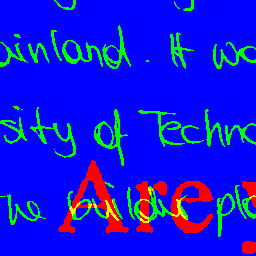 ainland. It wo
sity of Techno
he buildin plo
Are